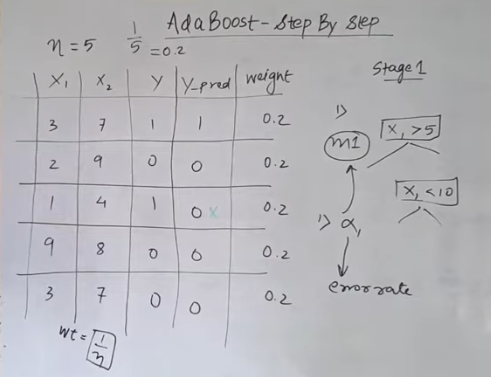 AdaBoost - Step By Step
n = 5 1/5 = 0.2
X1 X2 Y Y_pred weight
3 7 1 1 0.2
2 9 0 0 0.2
1 4 1 0 x 0.2
9 8 0 0 0.2
3 7 0 0 0.2
wt = 1/n
Stage 1
1)
m1 X1 > 5
X1 < 10
1) α1
error rate